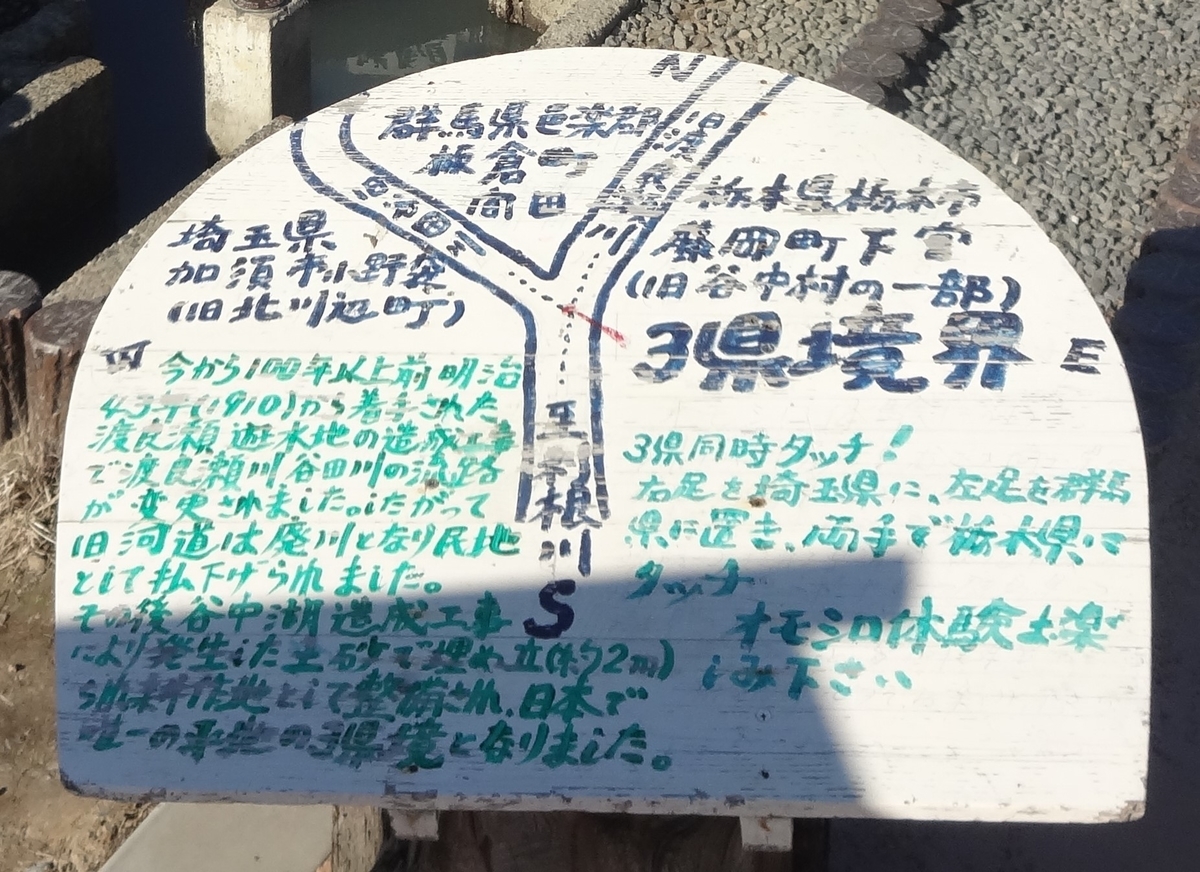 N
群馬県邑楽郡
板倉町
向田
旧渡良瀬川
旧谷田川
栃木県栃木市
藤岡町下宮
(旧谷中村の一部)
埼玉県
加須市小野袋
(旧北川辺町)
3県境界
E
今から100年以上前明治
43年(1910)から着手された
渡良瀬遊水地の造成工事
で渡良瀬川谷田川の流路
が変更されました。したがって
旧河道は廃川となり民地
として払下げられました。
その後谷中湖造成工事
により発生した土砂で埋め立(約2m)
られ耕作地として整備され、日本で
唯一の平地の3県境となりました。
至利根川
S
3県同時タッチ!
右足を埼玉県に、左足を群馬
県に置き、両手で栃木県に
タッチ
オモシロ体験お楽
しみ下さい